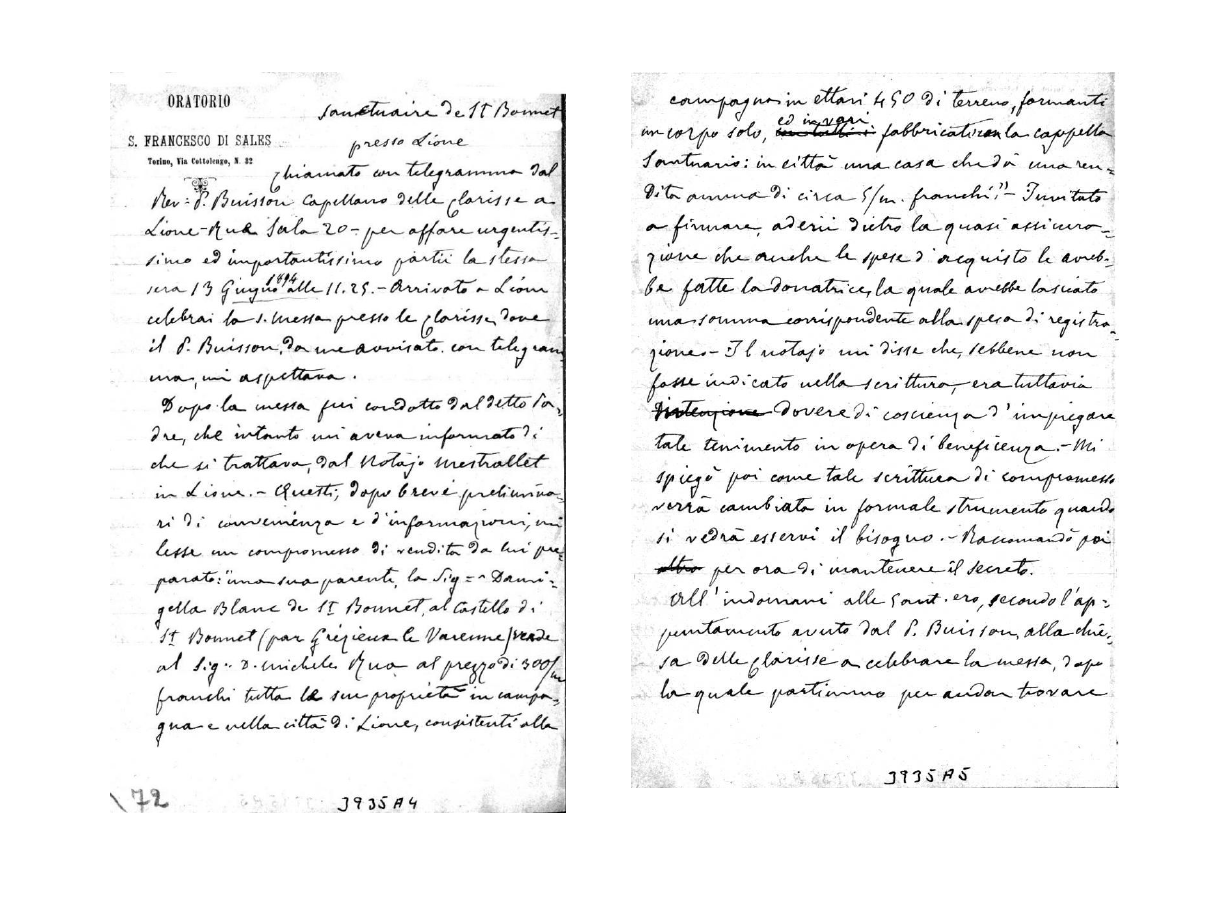 ORATORIO
S. FRANCESCO DI SALES
Torino, Via Cottolengo, N. 32
Sanctuaire de St Bonnet
presso Lione
Chiamato con telegramma dal
Rev: P. Buisson Capellano delle Clarisse a
Lione - Rua Sala 20 - per affare urgentis-
simo ed importantissimo partii la stessa
sera 13 Giugno 1894 alle 11.25. - Arrivato a Lione
celebrai la s. messa presso le Clarisse, dove
il P. Buisson, da me avvisato con telegram-
ma, mi aspettava.
Dopo la messa fui condotto dal detto Pa-
dre, che intanto mi aveva informato di
che si trattava, dal Notajo Mestrallet
in Lione. - Questi, dopo brevi prelimina-
ri di convenienza e d'informazioni, mi
lesse un compromesso di vendita da lui pre-
parato: "una sua parente, la Sig=ª Dami-
gella Blanc de St Bonnet, al castello di
St Bonnet (par Grézieux la Varenne) vende
al Sig: D. Michele Rua al prezzo di 300/m
franchi tutta la sua proprietà in campa-
gna e nella città di Lione, consistenti alla
\72
3935 A 4
campagna in ettari 450 di terreno, formanti
un corpo solo, ed in vari fabbricati con la cappella
Santuario: in città una casa che dà una ren-
dita annua di circa 5/m. franchi." - Invitato
a firmare, aderii dietro la quasi assicura-
zione che anche le spese d'acquisto le avreb-
be fatte la donatrice, la quale avrebbe lasciato
una somma corrispondente alla spesa di registra-
zione. - Il notajo mi disse che, sebbene non
fosse indicato nella scrittura, era tuttavia
d'intenzione dovere di coscienza d'impiegare
tale tenimento in opera di beneficenza. - Mi
spiegò poi come tale scrittura di compromesso
verrà cambiata in formale strumento quando
si vedrà esservi il bisogno. - Raccomandò poi
altro per ora di mantenere il secreto.
All'indomani alle 5 ant. ero, secondo l'ap-
puntamento avuto dal P. Buisson, alla chie-
sa delle Clarisse a celebrare la messa, dopo
la quale partimmo per andar trovare
3935 A 5